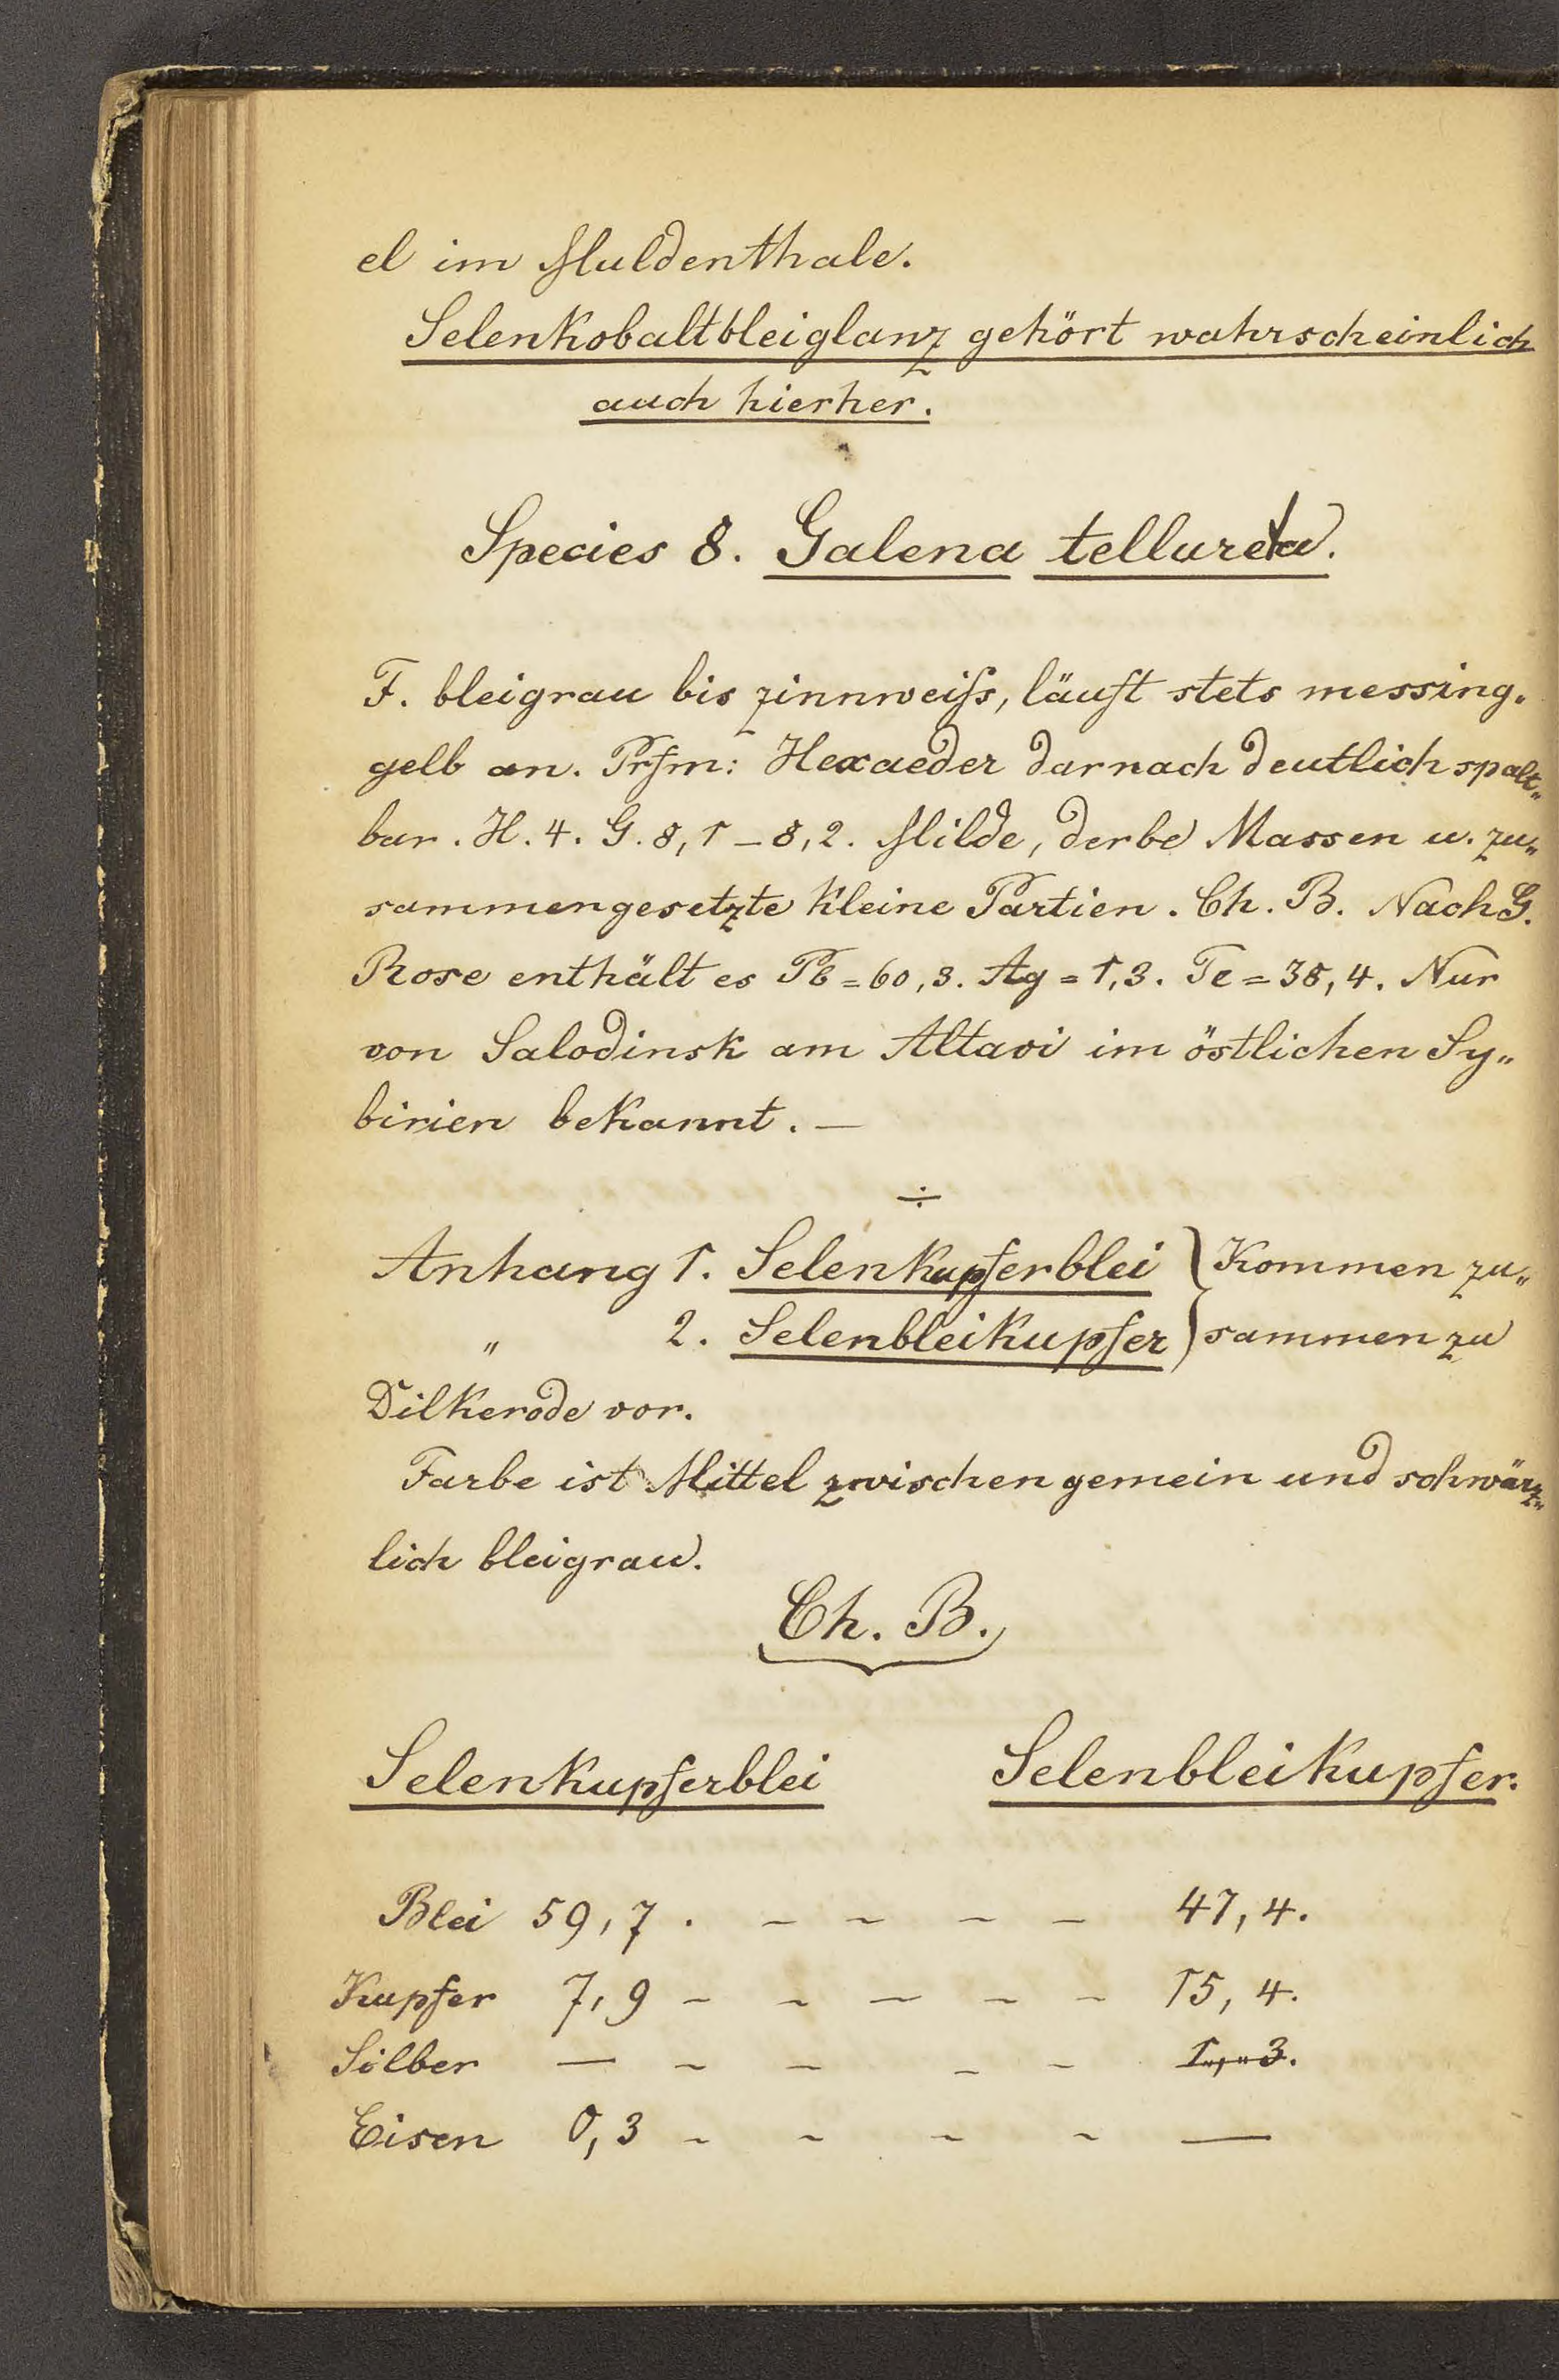 el im Muldenthale.
Selenkobaltbleiglanz gehört wahrscheinlich
auch hierher.
Species 8. Galena tellureta.
F. bleigrau bis zinnweiſs, läuft stets messing„
gelb an. Prfm: Hexaeder darnach deutlich spalt„
bar. H. 4. G. 8,1 – 8,2. Milde, derbe Massen u. zu„
sammengesetzte kleine Partien. Ch. B. Nach G.
Rose enthält es Pb = 60,3. Ag = 1,3. Te = 38,4. Nur
von Salodinsk am Altai im östlichen Sy„
birien bekannt. —
÷
Anhang 1. Selenkupferblei } Kommen zu„
„ 2. Selenbleikupfer } sammen zu
Dilkerode vor.
Farbe ist Mittel zwischen gemein und schwärz„
lich bleigrau.
Ch. B.
Selenkupferblei Selenbleikupfer.
Blei 59,7 . – – – – 47,4.
Kupfer 7,9 – – – – – 15,4.
Silber — – – – – 1,3.
Eisen 0,3 – – – – —